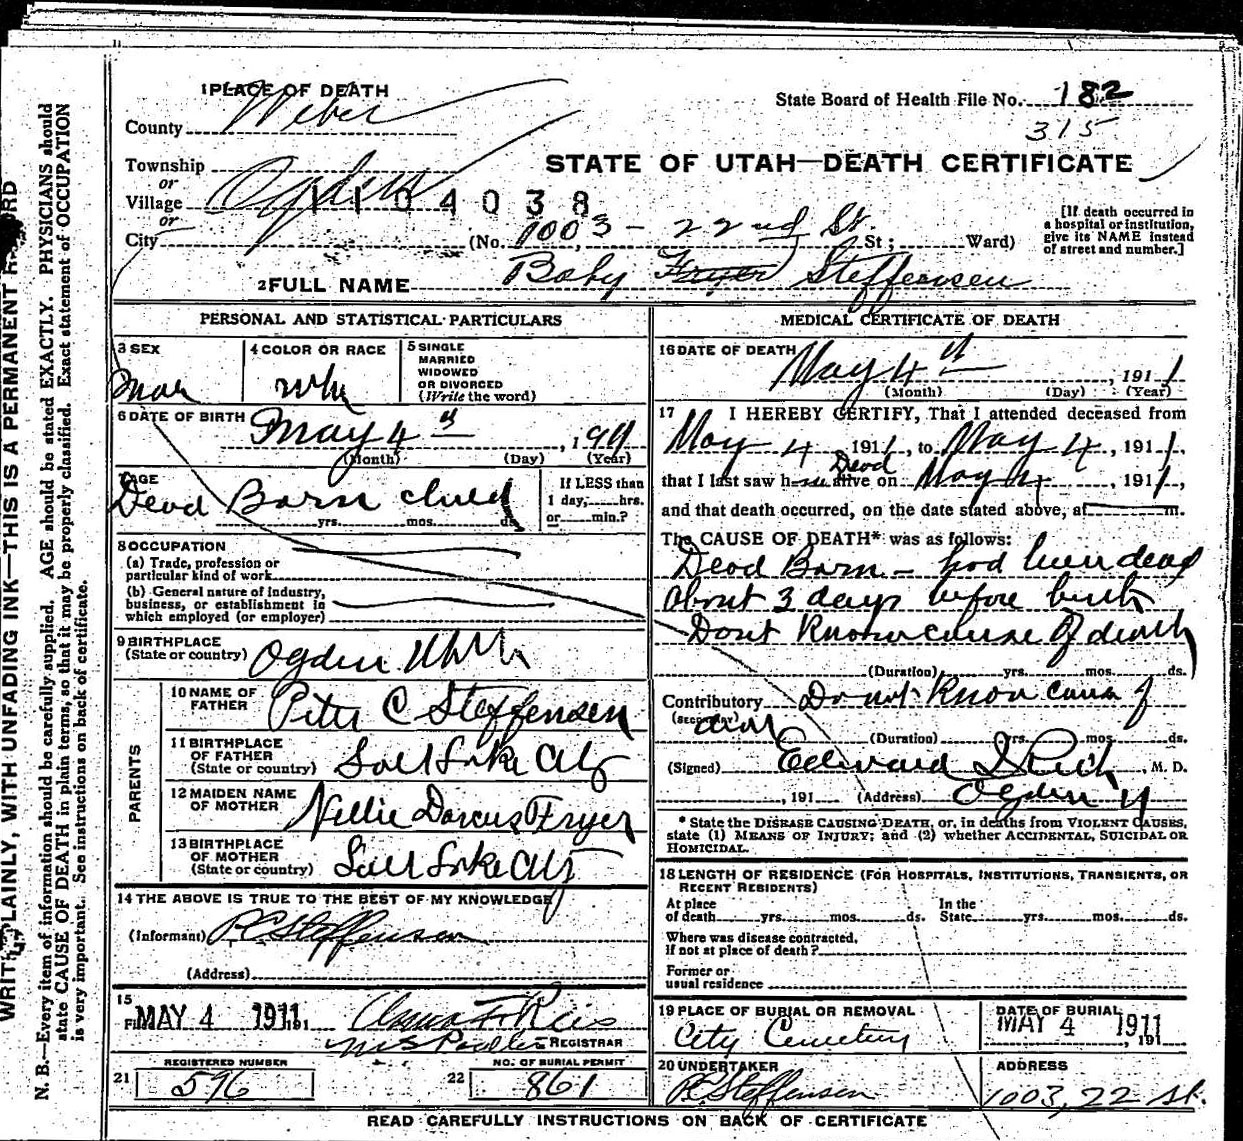 1 PLACE OF DEATH
State Board of Health File No. 182
315
County Weber
STATE OF UTAH—DEATH CERTIFICATE
Township
or
Village
or
City
Ogden
1104038
(No. 1003 - 22nd St. St; Ward)
[If death occurred in
a hospital or institution,
give its NAME instead
of street and number.]
2 FULL NAME Baby Fryer Steffensen
PERSONAL AND STATISTICAL PARTICULARS
3 SEX
4 COLOR OR RACE
5 SINGLE
MARRIED
WIDOWED
OR DIVORCED
(Write the word)
6 DATE OF BIRTH May 4th, 1911
(Month) (Day) (Year)
AGE
Dead Born child
yrs. mos. ds.
If LESS than
1 day, hrs.
or min.?
8 OCCUPATION
(a) Trade, profession or
particular kind of work
(b) General nature of industry,
business, or establishment in
which employed (or employer)
9 BIRTHPLACE
(State or country) Ogden Utah
PARENTS
10 NAME OF
FATHER Peter C Steffensen
11 BIRTHPLACE
OF FATHER
(State or country) Salt Lake City
12 MAIDEN NAME
OF MOTHER Nellie Darcus Fryer
13 BIRTHPLACE
OF MOTHER
(State or country) Salt Lake City
14 THE ABOVE IS TRUE TO THE BEST OF MY KNOWLEDGE
(Informant) P.C. Steffensen
(Address)
15
MAY 4 1911
REGISTRAR
REGISTERED NUMBER
21 596
NO. OF BURIAL PERMIT
22 861
MEDICAL CERTIFICATE OF DEATH
16 DATE OF DEATH May 4th, 1911
(Month) (Day) (Year)
17 I HEREBY CERTIFY, That I attended deceased from
May 4, 1911, to May 4, 1911,
Dead
that I last saw h alive on May 4, 1911,
and that death occurred, on the date stated above, at m.
The CAUSE OF DEATH* was as follows:
Dead Born - had been dead
about 3 days before birth
Dont Know cause of death
(Duration) yrs. mos. ds.
Contributory Do not Know cause of
(secondary)
(Duration) yrs. mos. ds.
(Signed) Edward I Rich, M. D.
, 191 (Address) Ogden U
* State the DISEASE CAUSING DEATH, or, in deaths from VIOLENT CAUSES,
state (1) MEANS OF INJURY; and (2) whether ACCIDENTAL, SUICIDAL OR
HOMICIDAL.
18 LENGTH OF RESIDENCE (FOR HOSPITALS, INSTITUTIONS, TRANSIENTS, OR
RECENT RESIDENTS)
At place
of death yrs. mos. ds.
In the
State yrs. mos. ds.
Where was disease contracted,
if not at place of death?
Former or
usual residence
19 PLACE OF BURIAL OR REMOVAL
City Cemetery
DATE OF BURIAL
MAY 4 1911
, 191
20 UNDERTAKER
P.C. Steffensen
ADDRESS
1003, 22 St.
READ CAREFULLY INSTRUCTIONS ON BACK OF CERTIFICATE
WRITE PLAINLY, WITH UNFADING INK—THIS IS A PERMANENT RECORD
N. B.—Every item of information should be carefully supplied. AGE should be stated EXACTLY. PHYSICIANS should
state CAUSE OF DEATH in plain terms, so that it may be properly classified. Exact statement of OCCUPATION
is very important. See instructions on back of certificate.